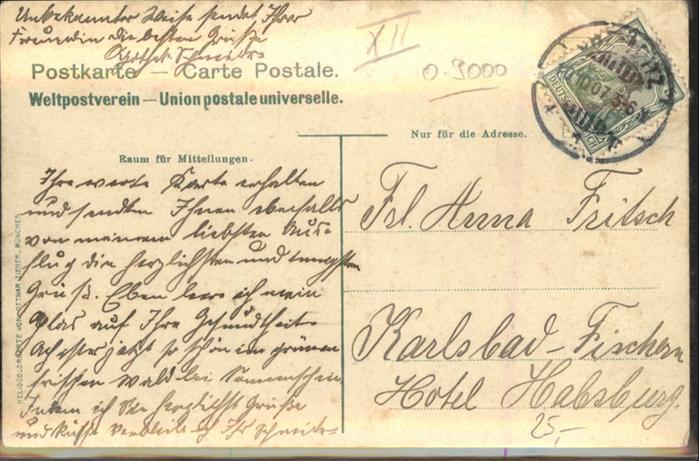 Unbekannter Weise sendet Ihrer
Freundin die besten Grüße
Schneider
Postkarte — Carte Postale.
Weltpostverein — Union postale universelle.
XII
0-9000
07. 5-6
DEUTSCHES REICH
Nur für die Adresse.
Raum für Mitteilungen.
Ihre werte Karte erhalten
und senden Ihnen ebenfalls
von meinem liebsten Aus-
flug die herzlichsten und innigsten
Gruß. Eben leere ich mein
Glas auf Ihre Gesundheit.
jetzt so schön im grünen
frischen Wald bei Sonnenschein
Indem ich Sie herzlichst Grüße
und Küsse verbleibe ich Ihr Schneider
Frl. Anna Fritsch
Karlsbad-Fischern
Hotel Habsburg.
25,-
HELIOCOLORKARTE VON OTTMAR ZIEHER, MÜNCHEN